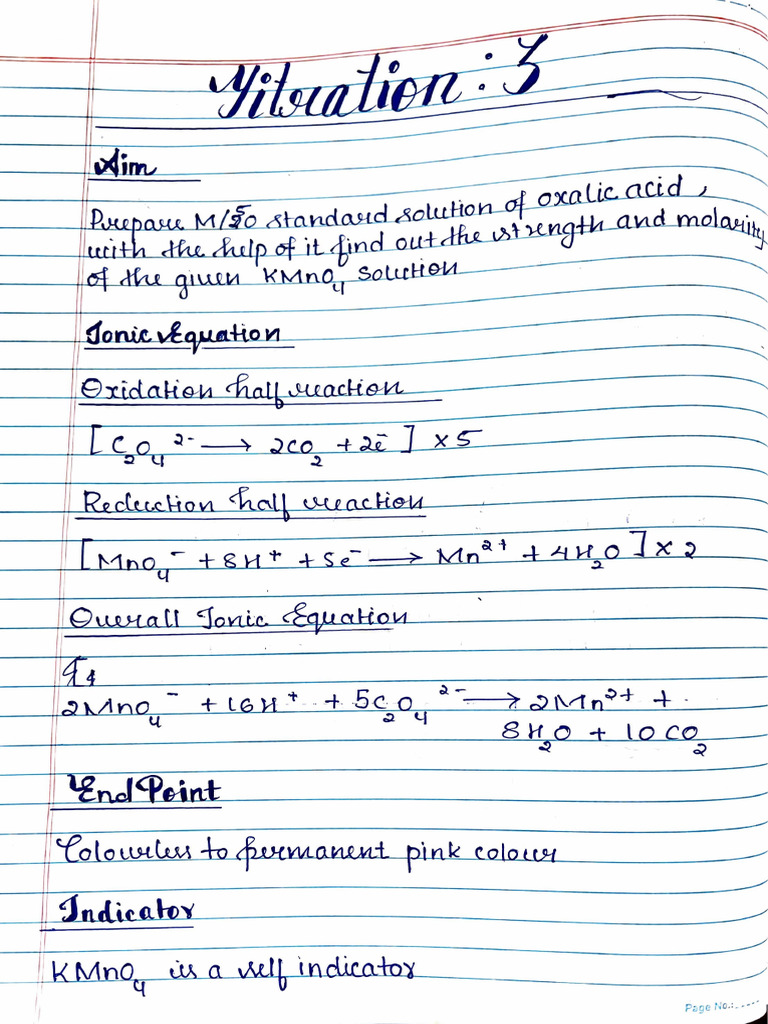 Titration : 3
Aim
Prepare M/50 standard solution of oxalic acid,
with the help of it find out the strength and molarity
of the given KMnO₄ solution
Ionic Equation
Oxidation half reaction
[C₂O₄²⁻ ⟶ 2CO₂ + 2e⁻] × 5
Reduction half reaction
[MnO₄⁻ + 8H⁺ + 5e⁻ ⟶ Mn²⁺ + 4H₂O] × 2
Overall Ionic Equation
2MnO₄⁻ + 16H⁺ + 5C₂O₄²⁻ ⟶ 2Mn²⁺ +
8H₂O + 10CO₂
End Point
Colourless to permanent pink colour
Indicator
KMnO₄ is a self indicator
Page No.: